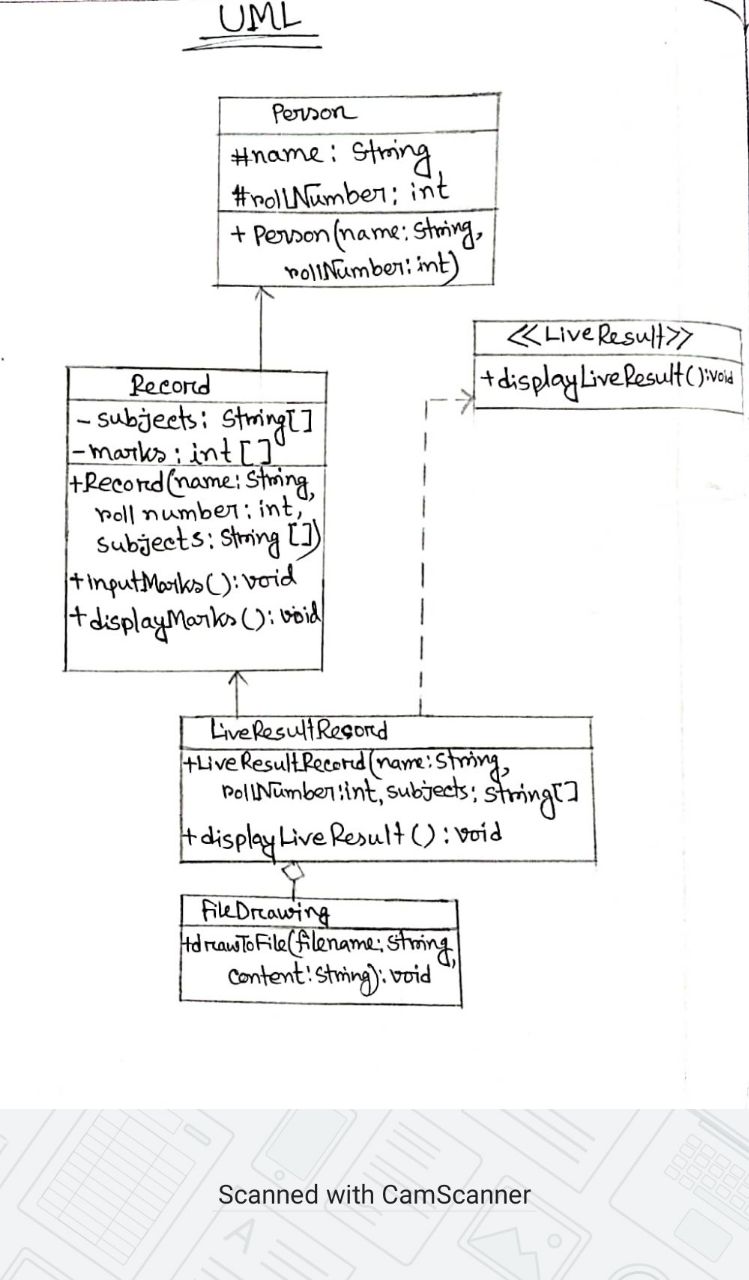 UML
Person
#name: String
#rollNumber: int
+ Person(name: String,
rollNumber: int)
<<LiveResult>>
+displayLiveResult():void
Record
- subjects: String[]
- marks: int []
+Record(name: String,
roll number: int,
subjects: String [])
+inputMarks(): void
+displayMarks(): void
LiveResultRecord
+LiveResultRecord(name: String,
rollNumber: int, subjects: String[]
+displayLiveResult(): void
FileDrawing
+drawToFile(filename: String,
content: String): void
Scanned with CamScanner